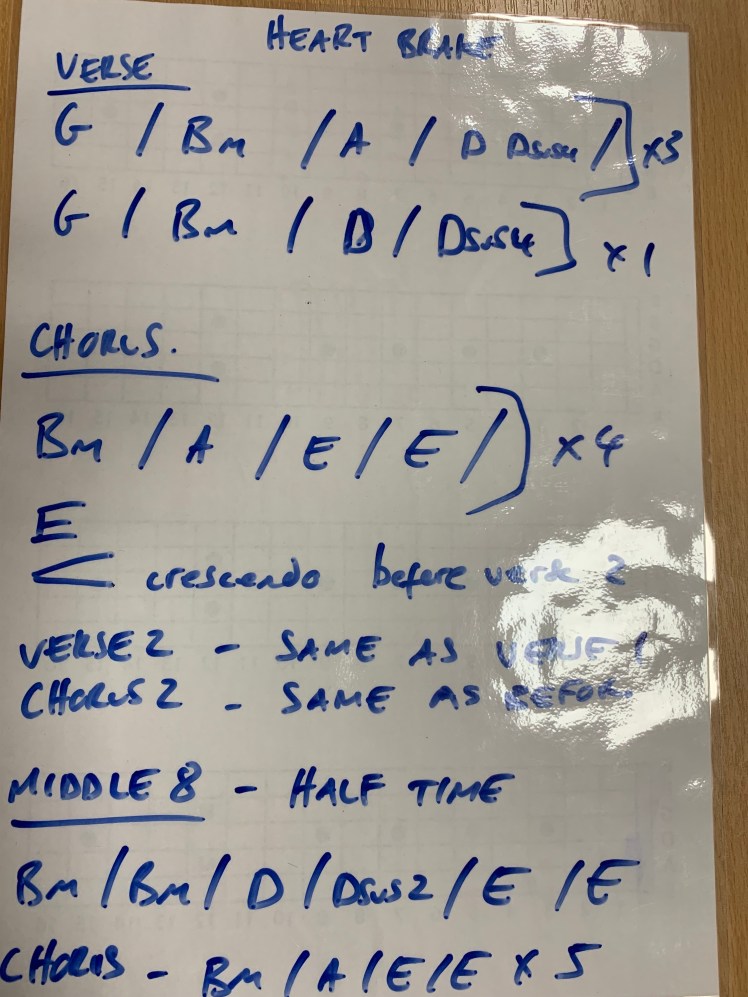 HEART BRAKE
VERSE
G / Bm / A / D Dsus4 / ] x3
G / Bm / D / Dsus4 ] x 1
CHORUS.
Bm / A / E / E / ] x 4
E
< crescendo before verse 2
VERSE 2 - SAME AS VERSE 1
CHORUS 2 - SAME AS BEFOR.
MIDDLE 8 - HALF TIME
Bm / Bm / D / Dsus2 / E / E
CHORUS - Bm / A / E / E x 5